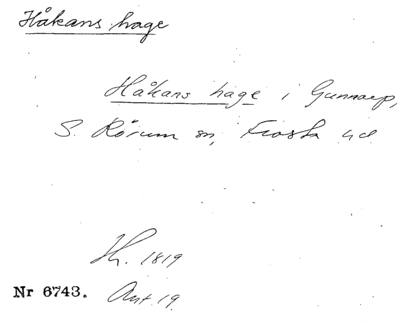 Håkans hage
Håkans hage i Gunnarp,
S. Rörum sn, Frosta hd.
Hr. 1819
Nr 6743. Ant. 19.